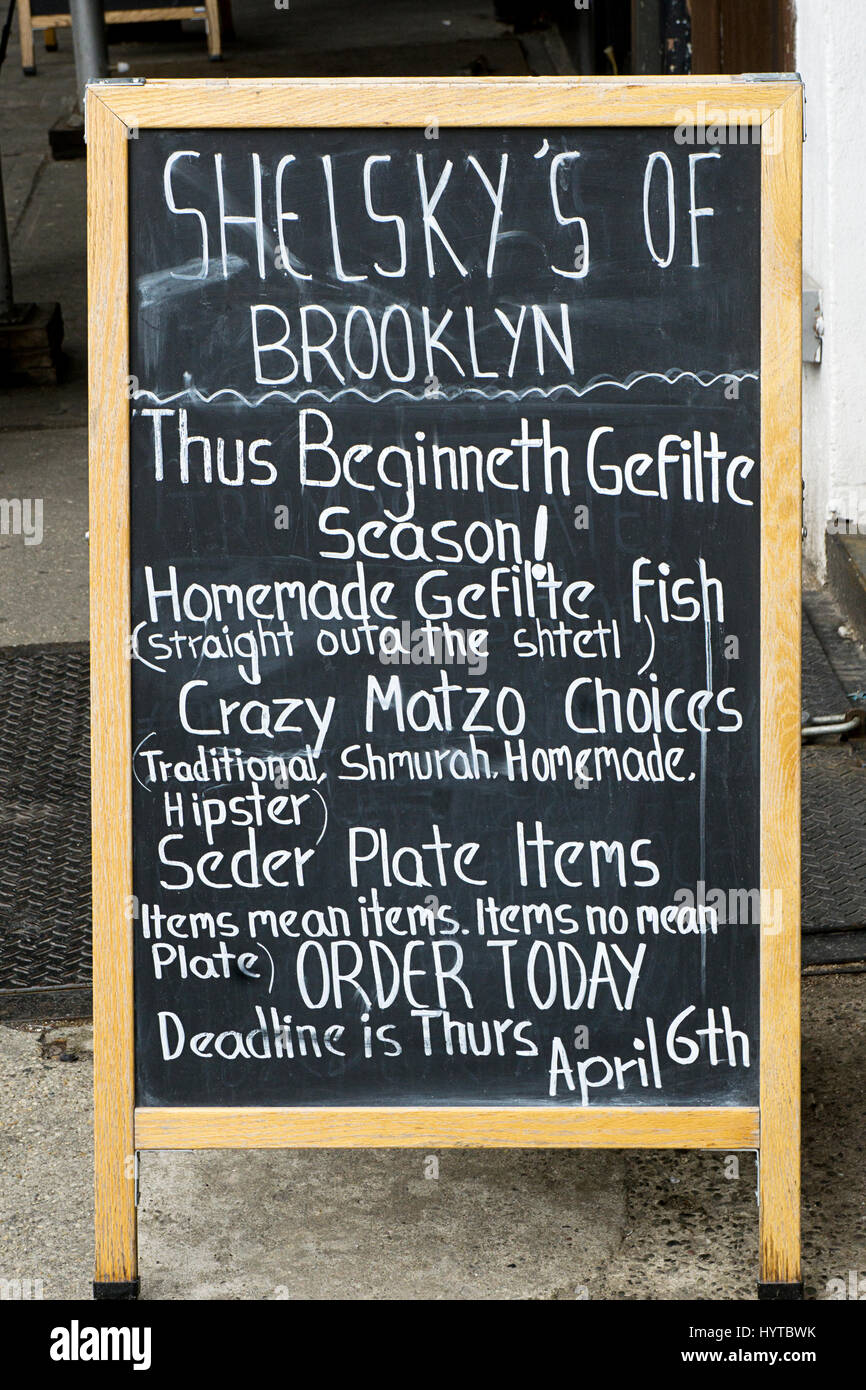 SHELSKY'S OF
BROOKLYN
Thus Beginneth Gefilte
Season!
Homemade Gefilte Fish
(straight outa the shtetl)
Crazy Matzo Choices
(Traditional, Shmurah, Homemade,
Hipster)
Seder Plate Items
Items mean items. Items no mean
Plate) ORDER TODAY
Deadline is Thurs April 6th
alamy
Image ID: HYTBWK
www.alamy.com